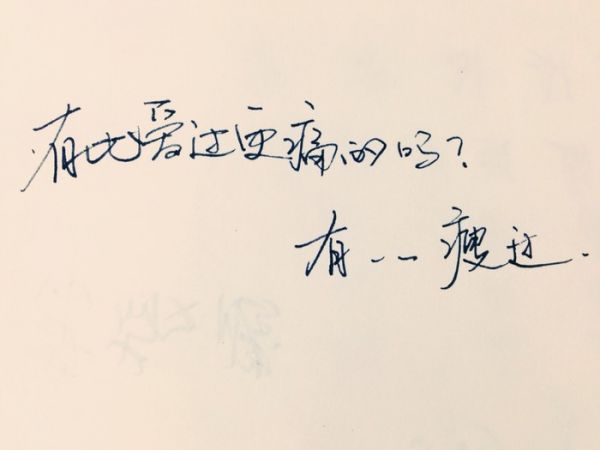 有比爱过更痛的吗?
有--瘦过.